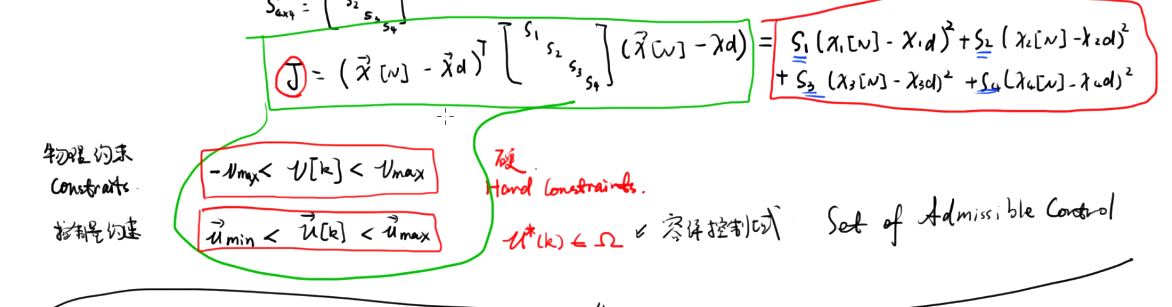 S₄ₓ₄ = [ S₂ S₃ S₄ ]
J = (x⃗[N] - x⃗d)ᵀ [ S₁ S₂ S₃ S₄ ] (x⃗[N] - xd) = S₁(x₁[N] - x₁d)² + S₂(x₂[N] - x₂d)²
+ S₃(x₃[N] - x₃d)² + S₄(x₄[N] - x₄d)²
物理约束
Constraits.
-νmax < ν[k] < νmax
硬
Hard Constraints.
控制量约束
u⃗min < u⃗[k] < u⃗max
u*(k) ∈ Ω ↙ 容许控制 Set of Admissible Control